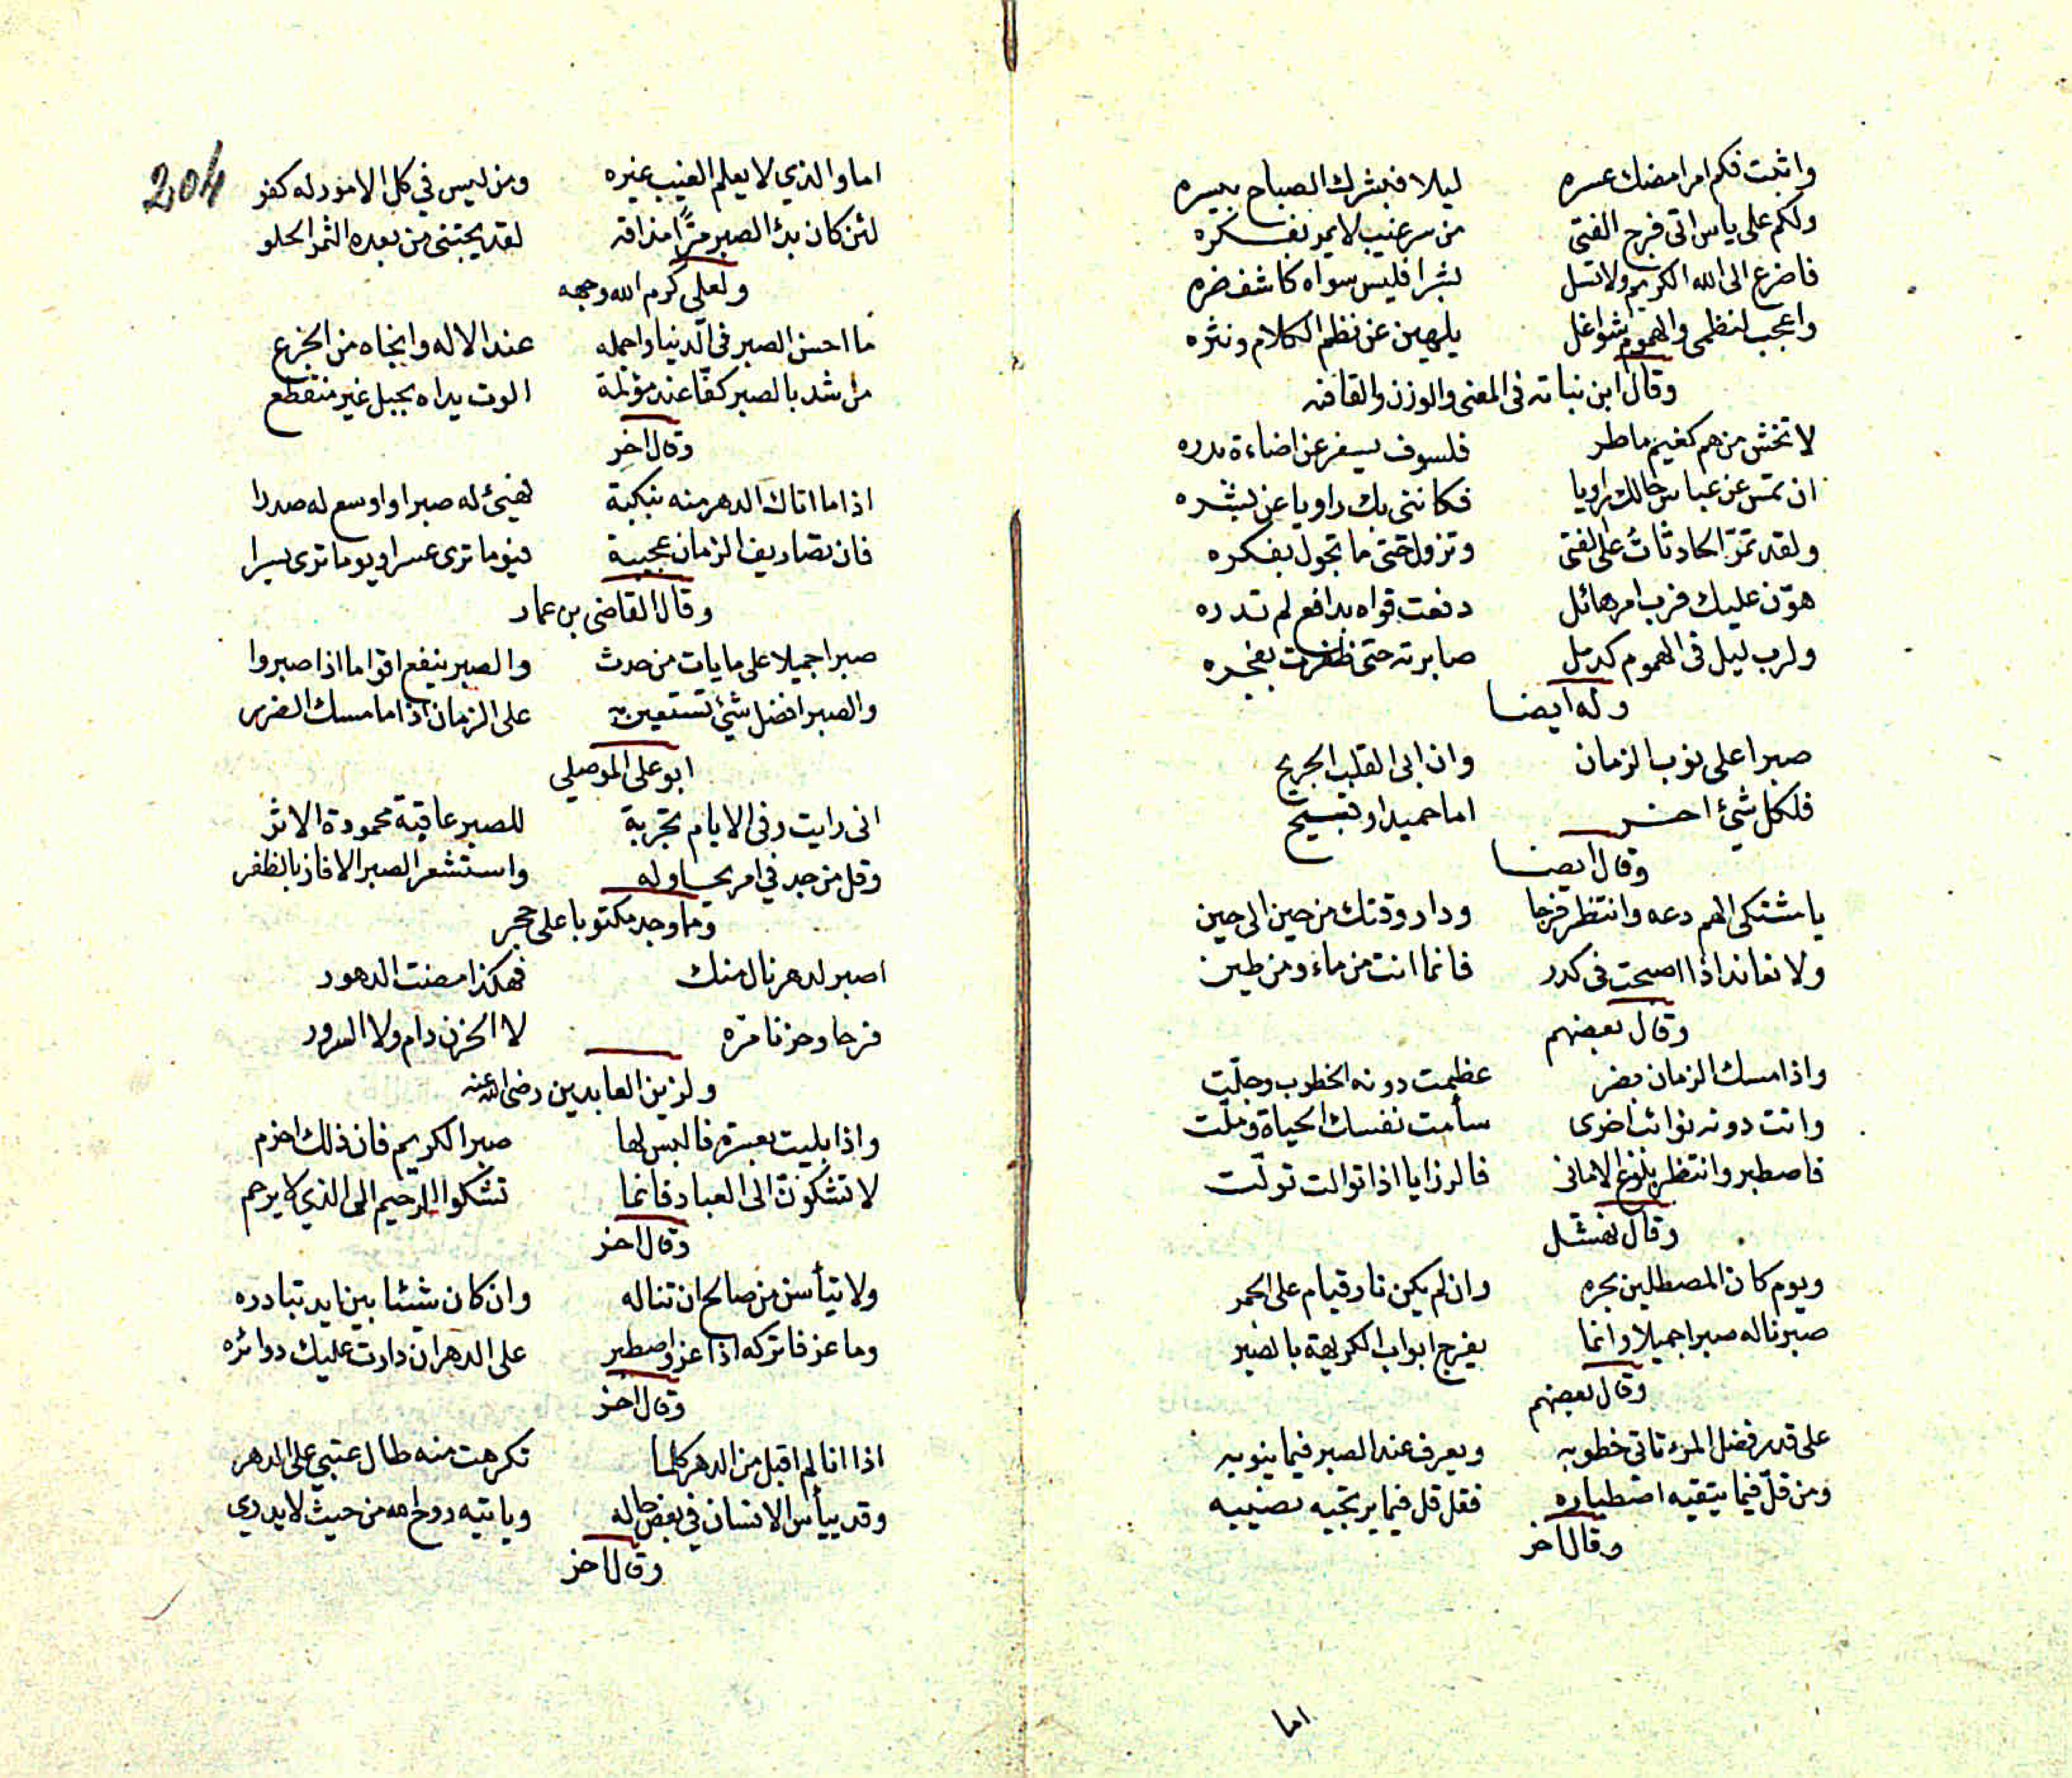 واثبت فكم امر امضك عسره ليلا فبشرك الصباح بيسره
ولكم على ياس اتى فرج الفتى من سر غيب لا يمر بفكره
فاضرع الى الله الكريم ولا تسل بشرا فليس سواه كاشف ضره
واعجب لنظمى والهموم شواغل يلهين عن نظم الكلام ونثره
وقال ابن نباته فى المعنى والوزن والقافيه
لا تخش من هم كغيم ماطر فلسوف يسفر عن اضاءة بدره
ان تمس عن عباس حالك راويا فكاننى بك راويا عن بشره
ولقد تمرّ الحادثاتُ على الفتى وتزول حتى ما تجول بفكره
هوّن عليك فرب امر هائل دفعت قواه بدافع لم تدره
ولرب ليل فى الهموم كدمل صابرته حتى ظفرت بفجره
وله ايضا
صبرا على نوب الزمان وان ابى القلب الجريح
فلكل شئ اخر اما حميد او قبيح
وقال ايضا
يا مشتكى الهم دعه وانتظر فرجا ودار وقتك من حين الى حين
ولا تعاند اذا اصبحت فى كدر فانما انت من ماء ومن طين
وقال بعضهم
واذا مسك الزمان بضر عظمت دونه الخطوب وجلّت
واتت دونه نوائب اخرى سأمت نفسك الحياة وملّت
فاصطبر وانتظر بلوغ الامانى فالرزايا اذا توالت تولّت
وقال نهشل
ويوم كان المصطلين بحره وان لم يكن نار قيام على الجمر
صبرنا له صبرا جميلا وانما يفرج ابواب الكريهة بالصبر
وقال بعضهم
على قدر فضل المرء تاتى خطوبه ويعرف عند الصبر فيما ينوبه
ومن قلّ فيما يتقيه اصطباره فقل قل فيما يرتجيه نصيبه
وقال اخر
اما
204
اما والذي لا يعلم الغيب غيره ومن ليس في كل الامور له كفو
لئن كان بدؤ الصبر مرًّا مذاقه لقد يجتنى من بعده الثمر الحلو
ولعلى كرم الله وجهه
ما احسن الصبر فى الدنيا واجمله عند الاله وانجاه من الجزع
من شد بالصبر كفّا عند مؤلمة الوت يداه بحبل غير منقطع
وقال اخر
اذا ما اتاك الدهر منه بنكبة فهيئ له صبرا واوسع له صدرا
فان تصاريف الزمان عجيبة فيوما ترى عسرا ويوما ترى يسرا
وقال القاضى بن عمار
صبرا جميلا على ما يات من حدث والصبر ينفع اقواما اذا صبروا
والصبر افضل شئ تستعين به على الزمان اذا ما مسك الضرر
ابو على الموصلي
انى رايت وفى الايام تجربة للصبر عاقبة محمودة الاثر
وقل من جد في امر يحاوله واستشعر الصبر الا فاز بالظفر
ومما وجد مكتوبا على حجر
اصبر لدهر نال منك فهكذا مضت الدهور
فرحا وحزنا مرّه لا الحزن دام ولا السرور
ولزين العابدين رضى الله عنه
واذا بليت بعسرة فالبس لها صبر الكريم فان ذلك احزم
لا تشكونّ الى العباد فانما تشكوا الرحيم الى الذي لا يرحم
وقال اخر
ولا تيأسن من صالح ان تناله وان كان شيئا بين ايد تبادره
وما عز فاتركه اذا عز واصطبر على الدهر ان دارت عليك دوائره
وقال اخر
اذا انا لم اقبل من الدهر كلما تكرهت منه طال عتبي على الدهر
وقد ييأس الانسان في بعض حاله وياتيه روح الله من حيث لا يدري
وقال اخر